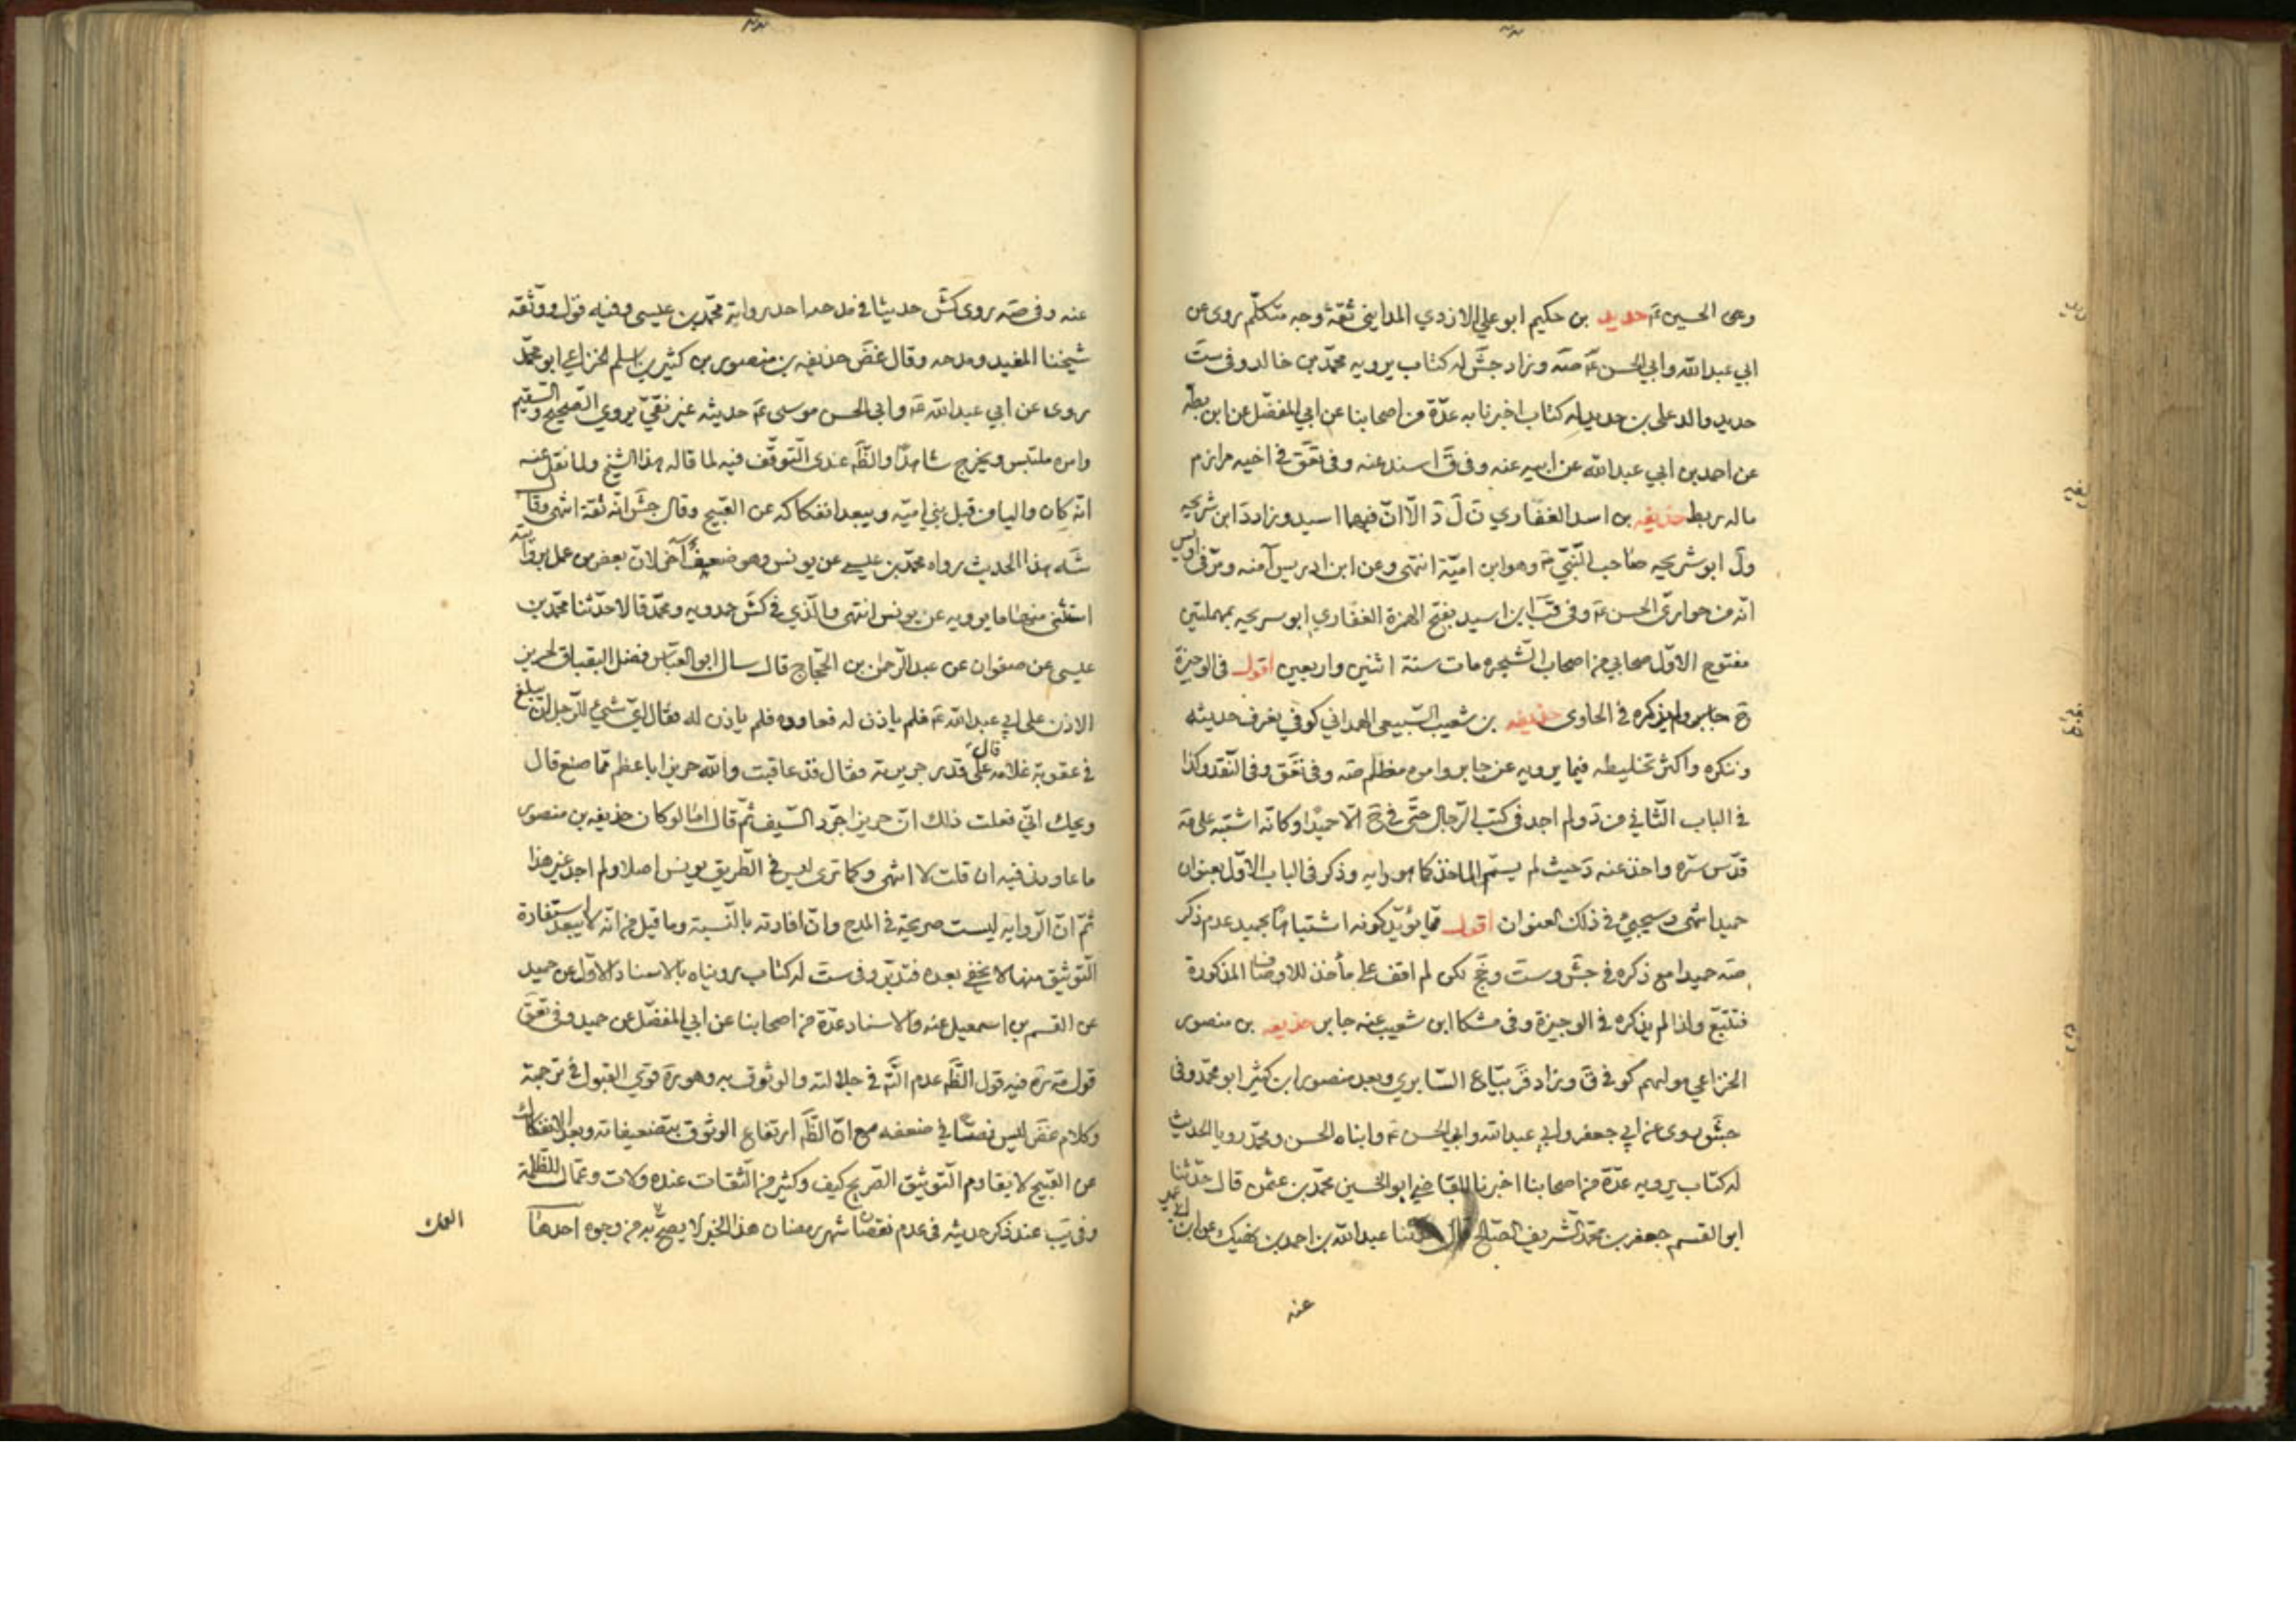 وعى الحسين ع حديد بن حكيم ابو علي الازدي المدايني ثقة وجه متكلم روى عن
ابي عبدالله وابي الحسن ع صه وزاد جش له كتاب يرويه محمد بن خالد وفي ست
حديد والد علي بن حديد له كتاب اخبرنا به عدة من اصحابنا عن ابي المفضل عن ابن بطه
عن احمد بن ابي عبدالله عن ابيه عنه وفي ق اسند عنه وفي تعق في اخيه مرازم
ماله ربط حذيفه بن اسد الغفاري ن ل د الا ان فيهما اسيد وزاد د ابن شريحه
ول ابو شريحه صاحب النبي ص وهو ابن امية انتهى وعن ابن ادريس آمنه ومر في اويس
انه من حواري الحسن ع وفي قب ابن اسيد بفتح الهمزة الغفاري ابو سريحه بمهملتين
مفتوح الاول صحابي من اصحاب الشجره مات سنة اثنين واربعين اقول في الوجيزة
ح ولم يذكره في الحاوى حذيفه بن شعيب السبيعي الهمداني كوفي يعرف حديثه
وننكره واكثر تخليطه فيما يرويه عن جابر وامره مظلم صه وفي تعق وفي النقد وكذا
في الباب الثاني من د ولم اجد في كتب الرجال حتى في خ الا حميدا وكانه اشتبه على مه
قدس سره واخذ عنه د حيث لم يسم الماخذ كما هو دابه وذكر في الباب الاول بعنوان
حميد انتهى وسيجيئ في ذلك العنوان اقول مما يؤيد كونه اشتباها بحميد عدم ذكر
صه حميدا مع ذكره في جش وست وخج لكن لم اقف على مأخذ للاوصاف المذكورة
فتتبع ولذا لم يذكره في الوجيزة وفي مشكا ابن شعيب عنه جابر حذيفه بن منصور
الخزاعي مولاهم كوفي ق وزاد قر بياع السابري وبعد منصور ابن كثير ابو محمد وفي
جش روى عن ابي جعفر وابي عبدالله وابي الحسن ع وابناه الحسن ومحمد رويا الحديث
له كتاب يرويه عدة من اصحابنا اخبرنا القاضي ابو الحسين محمد بن عثمن قال حدثنا
ابو القسم جعفر بن محمد الشريف الصالح قال حدثنا عبدالله بن احمد بن نهيك عن ابن ابي عمير
عنه
عنه وفي صه روى كش حديثا في مدحه احد رواته محمد بن عيسى وفيه قول ووثقه
شيخنا المفيد ومدحه وقال غض حذيفه بن منصور بن كثير بن سلم الخزاعي ابو محمد
روى عن ابي عبدالله ع وابي الحسن موسى ع حديثه غير نقي يروي الصحيح والسقيم
وامره ملتبس ويخرج شاهدا والظ عندى التوقف فيه لما قاله هذا الشيخ ولما نقل عنه
انه كان واليا من قبل بني اميه ويبعد انفكاكه عن القبيح وقال جش انه ثقة انتهى وقال
شه هذا الحديث رواه محمد بن عيسى عن يونس وهو ضعيف آخر لان بعض من عمل برواته
استثنى منها ما يرويه عن يونس انتهى والذي في كش حمدويه ومحمد قالا حدثنا محمد بن
عيسى عن صفوان عن عبدالرحمن بن الحجاج قال سال ابو العباس فضل البقباق لحريز
الاذن على ابي عبدالله ع فلم ياذن له فعاوده فلم ياذن له فقال اي شئ للرجل ان يبلغ
في عقوبة غلامه قال على قدر جريرته فقال قد عاقبت والله حريزا باعظم مما صنع قال
ويحك اني فعلت ذلك ان حريزا جرد السيف ثم قال اما لو كان حذيفه بن منصور
ما عاودني فيه ان قلت لا انتهى وكما ترى ليس في الطريق يونس اصلا ولم اجد غير هذا
ثم ان الروايه ليست صريحة في المدح وان افادته بالنسبة وما قيل من انه لا يبعد استفادة
التوثيق منها لا يخفى بعده فتدبر وفي ست له كتاب رويناه بالاسناد الاول عن حميد
عن القسم بن اسمعيل عنه والاسناد عدة من اصحابنا عن ابي المفضل عن حميد وفي تعق
قول مه ره فيه قول الظ عدم التم في جلالته والوثوق به وهو ره قوي القبول في ترجمة
وكلام غض ليس نصا في ضعفه مع ان الظ ارتفاع الوثوق بتضعيفاته وبعد الانفكاك
عن القبيح لا يقاوم التوثيق الصريح كيف وكثير من الثقات عنده ولات وعمال للظلمة
وفي يب عند ذكر حديثه في عدم نقصان شهر رمضان هذا الخبر لا يصح به من وجوه احدها